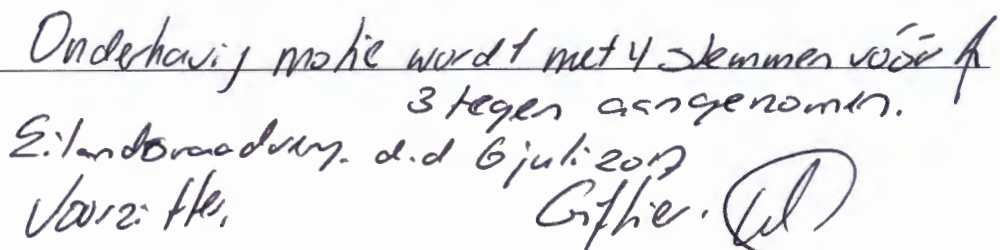 Onderhavig motie wordt met 4 stemmen vóór &
3 tegen aangenomen.
Eilandsraadverg. d.d 6 juli 2017
Voorzitter,
Griffier.